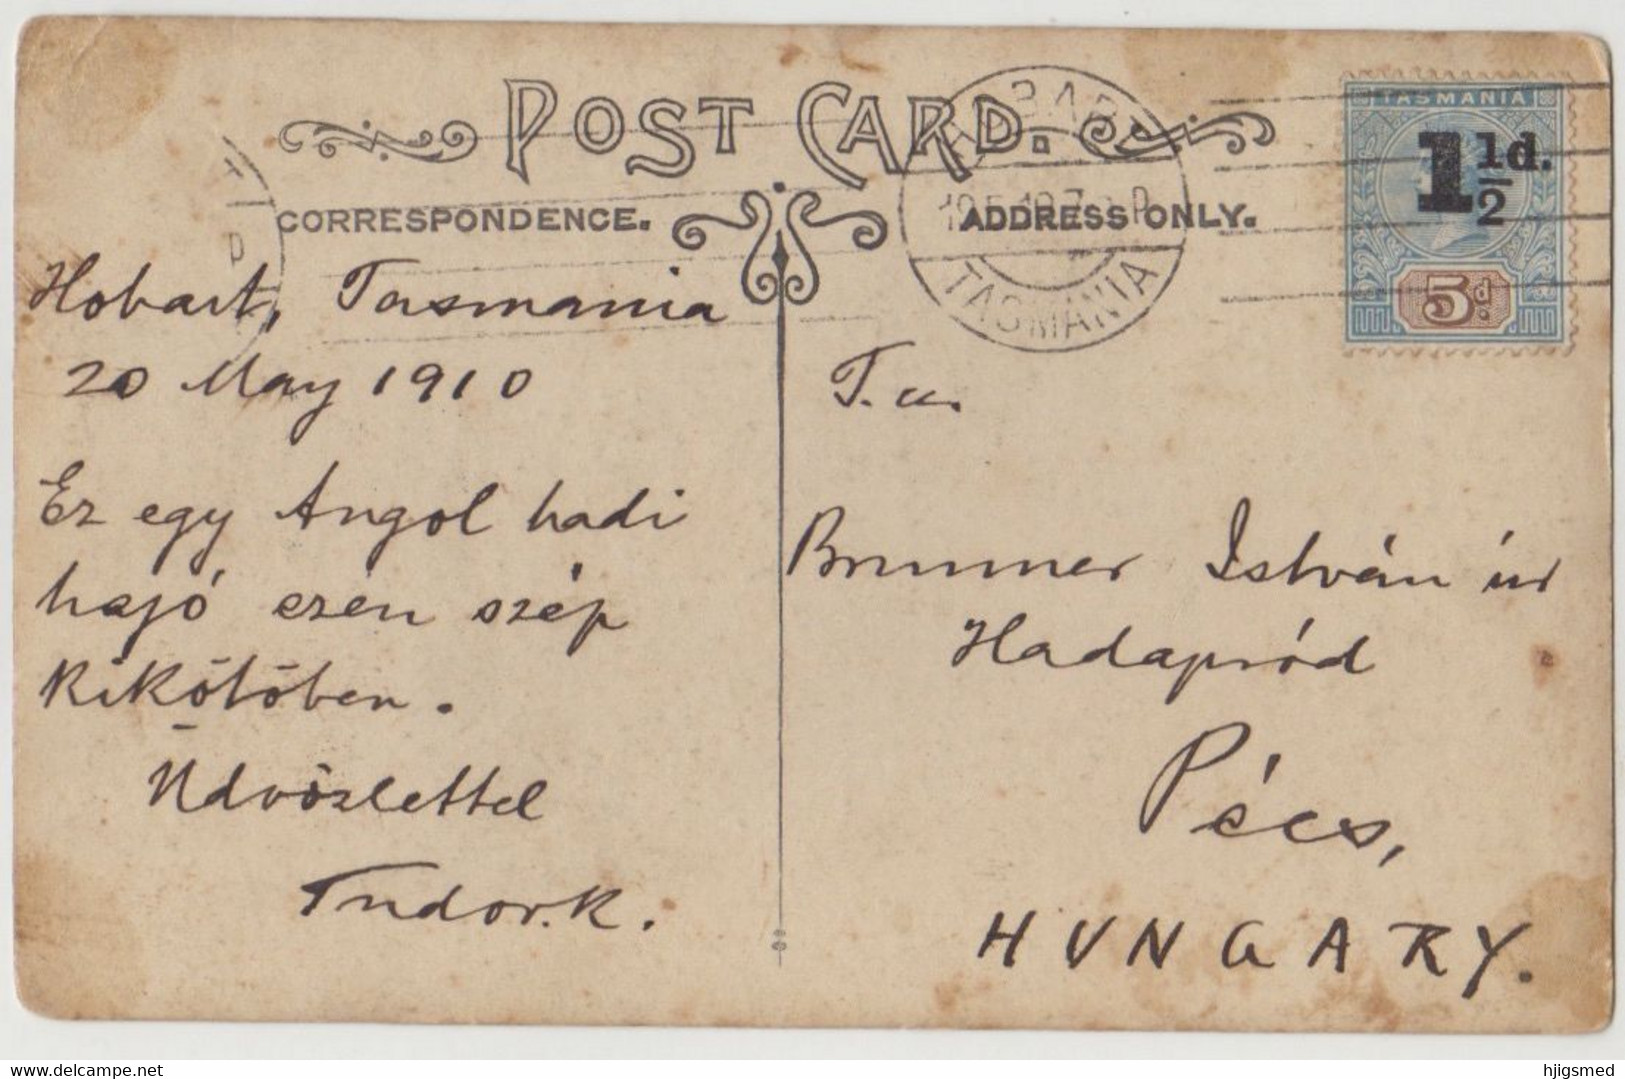 POST CARD.
CORRESPONDENCE.
ADDRESS ONLY.
HOBART
TASMANIA
TASMANIA
1½d.
5d
Hobart, Tasmania
20 May 1910
Ez egy Angol hadi
hajó ezen szép
Kikötöben.
Üdvözlettel
Tudor.K.
T. u.
Brunner István úr
Hadapród
Pécs,
HUNGARY.
www.delcampe.net
hjigsmed